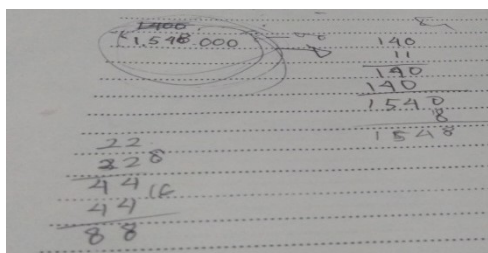 1400
1.548.000
140
11
140
140
1540
8
1548
22
22 8
44 16
44
88